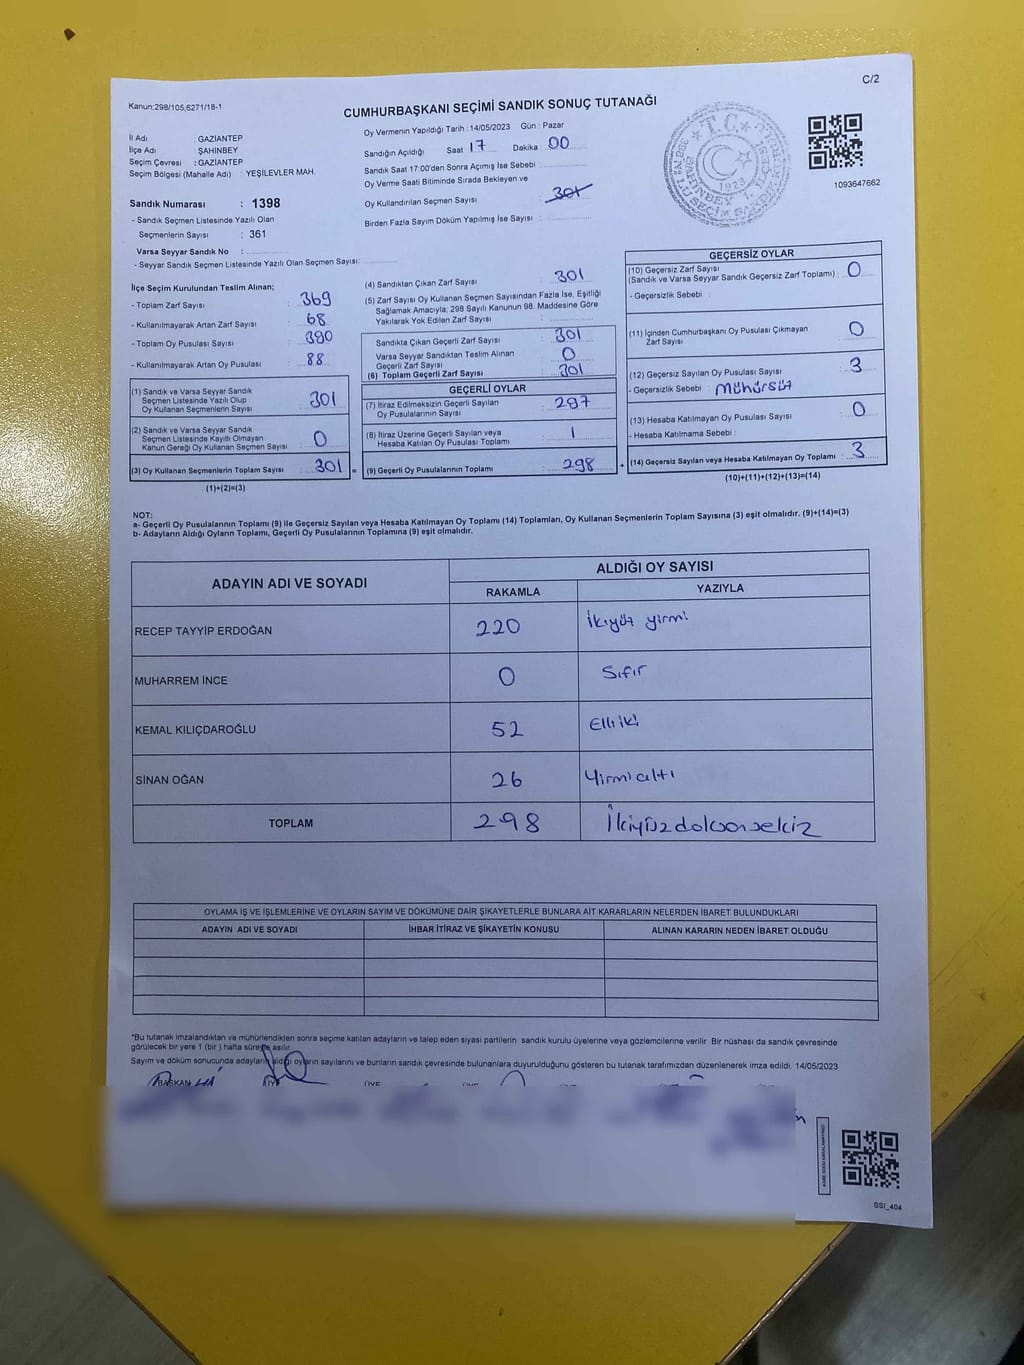 C/2
Kanun:298/105,6271/18-1
CUMHURBAŞKANI SEÇİMİ SANDIK SONUÇ TUTANAĞI
İl Adı : GAZİANTEP
İlçe Adı : ŞAHİNBEY
Seçim Çevresi : GAZİANTEP
Seçim Bölgesi (Mahalle Adı) : YEŞİLEVLER MAH.
Sandık Numarası : 1398
- Sandık Seçmen Listesinde Yazılı Olan
Seçmenlerin Sayısı : 361
Varsa Seyyar Sandık No :
- Seyyar Sandık Seçmen Listesinde Yazılı Olan Seçmen Sayısı:
Oy Vermenin Yapıldığı Tarih :14/05/2023 Gün : Pazar
Sandığın Açıldığı Saat 17 Dakika 00
Sandık Saat 17:00'den Sonra Açımış İse Sebebi :
Oy Verme Saati Bitiminde Sırada Bekleyen ve
Oy Kullandırılan Seçmen Sayısı : 301
Birden Fazla Sayım Döküm Yapılmış İse Sayısı :
T.C.
1923
1093647662
İlçe Seçim Kurulundan Teslim Alınan;
- Toplam Zarf Sayısı : 369
- Kullanılmayarak Artan Zarf Sayısı : 68
- Toplam Oy Pusulası Sayısı : 390
- Kullanılmayarak Artan Oy Pusulası : 88
(1) Sandık ve Varsa Seyyar Sandık
Seçmen Listesinde Yazılı Olup
Oy Kullanan Seçmenlerin Sayısı : 301
(2) Sandık ve Varsa Seyyar Sandık
Seçmen Listesinde Kayıtlı Olmayan
Kanun Gereği Oy Kullanan Seçmen Sayısı : 0
(3) Oy Kullanan Seçmenlerin Toplam Sayısı : 301
(1)+(2)=(3)
(4) Sandıktan Çıkan Zarf Sayısı : 301
(5) Zarf Sayısı Oy Kullanan Seçmen Sayısından Fazla İse, Eşitliği
Sağlamak Amacıyla; 298 Sayılı Kanunun 98. Maddesine Göre
Yakılarak Yok Edilen Zarf Sayısı :
Sandıkta Çıkan Geçerli Zarf Sayısı : 301
Varsa Seyyar Sandıktan Teslim Alınan
Geçerli Zarf Sayısı : 0
(6) Toplam Geçerli Zarf Sayısı : 301
GEÇERLİ OYLAR
(7) İtiraz Edilmeksizin Geçerli Sayılan
Oy Pusulalarının Sayısı : 297
(8) İtiraz Üzerine Geçerli Sayılan veya
Hesaba Katılan Oy Pusulası Toplamı : 1
(9) Geçerli Oy Pusulalarının Toplamı : 298
GEÇERSİZ OYLAR
(10) Geçersiz Zarf Sayısı
(Sandık ve Varsa Seyyar Sandık Geçersiz Zarf Toplamı) : 0
- Geçersizlik Sebebi :
(11) İçinden Cumhurbaşkanı Oy Pusulası Çıkmayan
Zarf Sayısı : 0
(12) Geçersiz Sayılan Oy Pusulası Sayısı : 3
- Geçersizlik Sebebi : mühürsüz
(13) Hesaba Katılmayan Oy Pusulası Sayısı : 0
- Hesaba Katılmama Sebebi :
(14) Geçersiz Sayılan veya Hesaba Katılmayan Oy Toplamı : 3
(10)+(11)+(12)+(13)=(14)
NOT:
a- Geçerli Oy Pusulalarının Toplamı (9) ile Geçersiz Sayılan veya Hesaba Katılmayan Oy Toplamı (14) Toplamları, Oy Kullanan Seçmenlerin Toplam Sayısına (3) eşit olmalıdır. (9)+(14)=(3)
b- Adayların Aldığı Oyların Toplamı, Geçerli Oy Pusulalarının Toplamına (9) eşit olmalıdır.
ADAYIN ADI VE SOYADI ALDIĞI OY SAYISI
RAKAMLA YAZIYLA
RECEP TAYYİP ERDOĞAN 220 İkiyüz yirmi
MUHARREM İNCE 0 Sıfır
KEMAL KILIÇDAROĞLU 52 Elli iki
SİNAN OĞAN 26 Yirmi altı
TOPLAM 298 İkiyüzdoksansekiz
OYLAMA İŞ VE İŞLEMLERİNE VE OYLARIN SAYIM VE DÖKÜMÜNE DAİR ŞİKAYETLERLE BUNLARA AİT KARARLARIN NELERDEN İBARET BULUNDUKLARI
ADAYIN ADI VE SOYADI İHBAR İTİRAZ VE ŞİKAYETİN KONUSU ALINAN KARARIN NEDEN İBARET OLDUĞU
*Bu tutanak imzalandıktan ve mühürlendikten sonra seçime katılan adayların ve talep eden siyasi partilerin sandık kurulu üyelerine veya gözlemcilerine verilir Bir nüshası da sandık çevresinde
görülecek bir yere 1 (bir ) hafta süreyle asılır.
Sayım ve döküm sonucunda adayların aldığı oyların sayılarını ve bunların sandık çevresinde bulunanlara duyurulduğunu gösteren bu tutanak tarafımızdan düzenlenerek imza edildi. 14/05/2023
BAŞKAN ÜYE ÜYE ÜYE
GSI_404